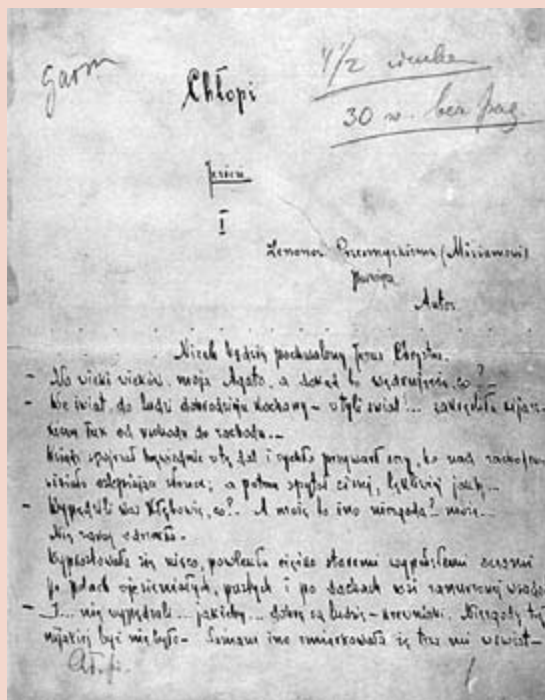 garm
Chłopi
4 1/2
30 w. bez
Jesień
I
Zenonowi Przesmyckiemu (Miriamowi)
Autor
Niech będzie pochwalony Jezus Chrystus.
– Na wieki wieków, moja Agato, a dokąd to wędrujecie, co? –
– We świat, do ludzi dobrodzieju kochany – w tyli świat!... zakreśliła kijasz-
kiem łuk od wschodu do zachodu...
Ksiądz spojrzał bezwiednie w tę dal i rychło przywarł oczy, bo nad zachodem
wisiało oślepiające słońce; a potem spytał ciszej, lękliwiej jakby...
– Wypędzili was Kłębowie, co?. A może to ino niezgoda? może...
Nie zaraz odrzekła.
Wyprostowała się nieco, powlekła ciężko staremi wypełzłemi oczami
po polach ojesieniałych, pustych i po dachach wsi zanurzonej w sadach
– I... nie wypędzali... jakżeby... dobrzy są ludzie – krewniaki. Niezgody też
nijakiej być nie było – Samam ino zmiarkowała że trza mi w świat –